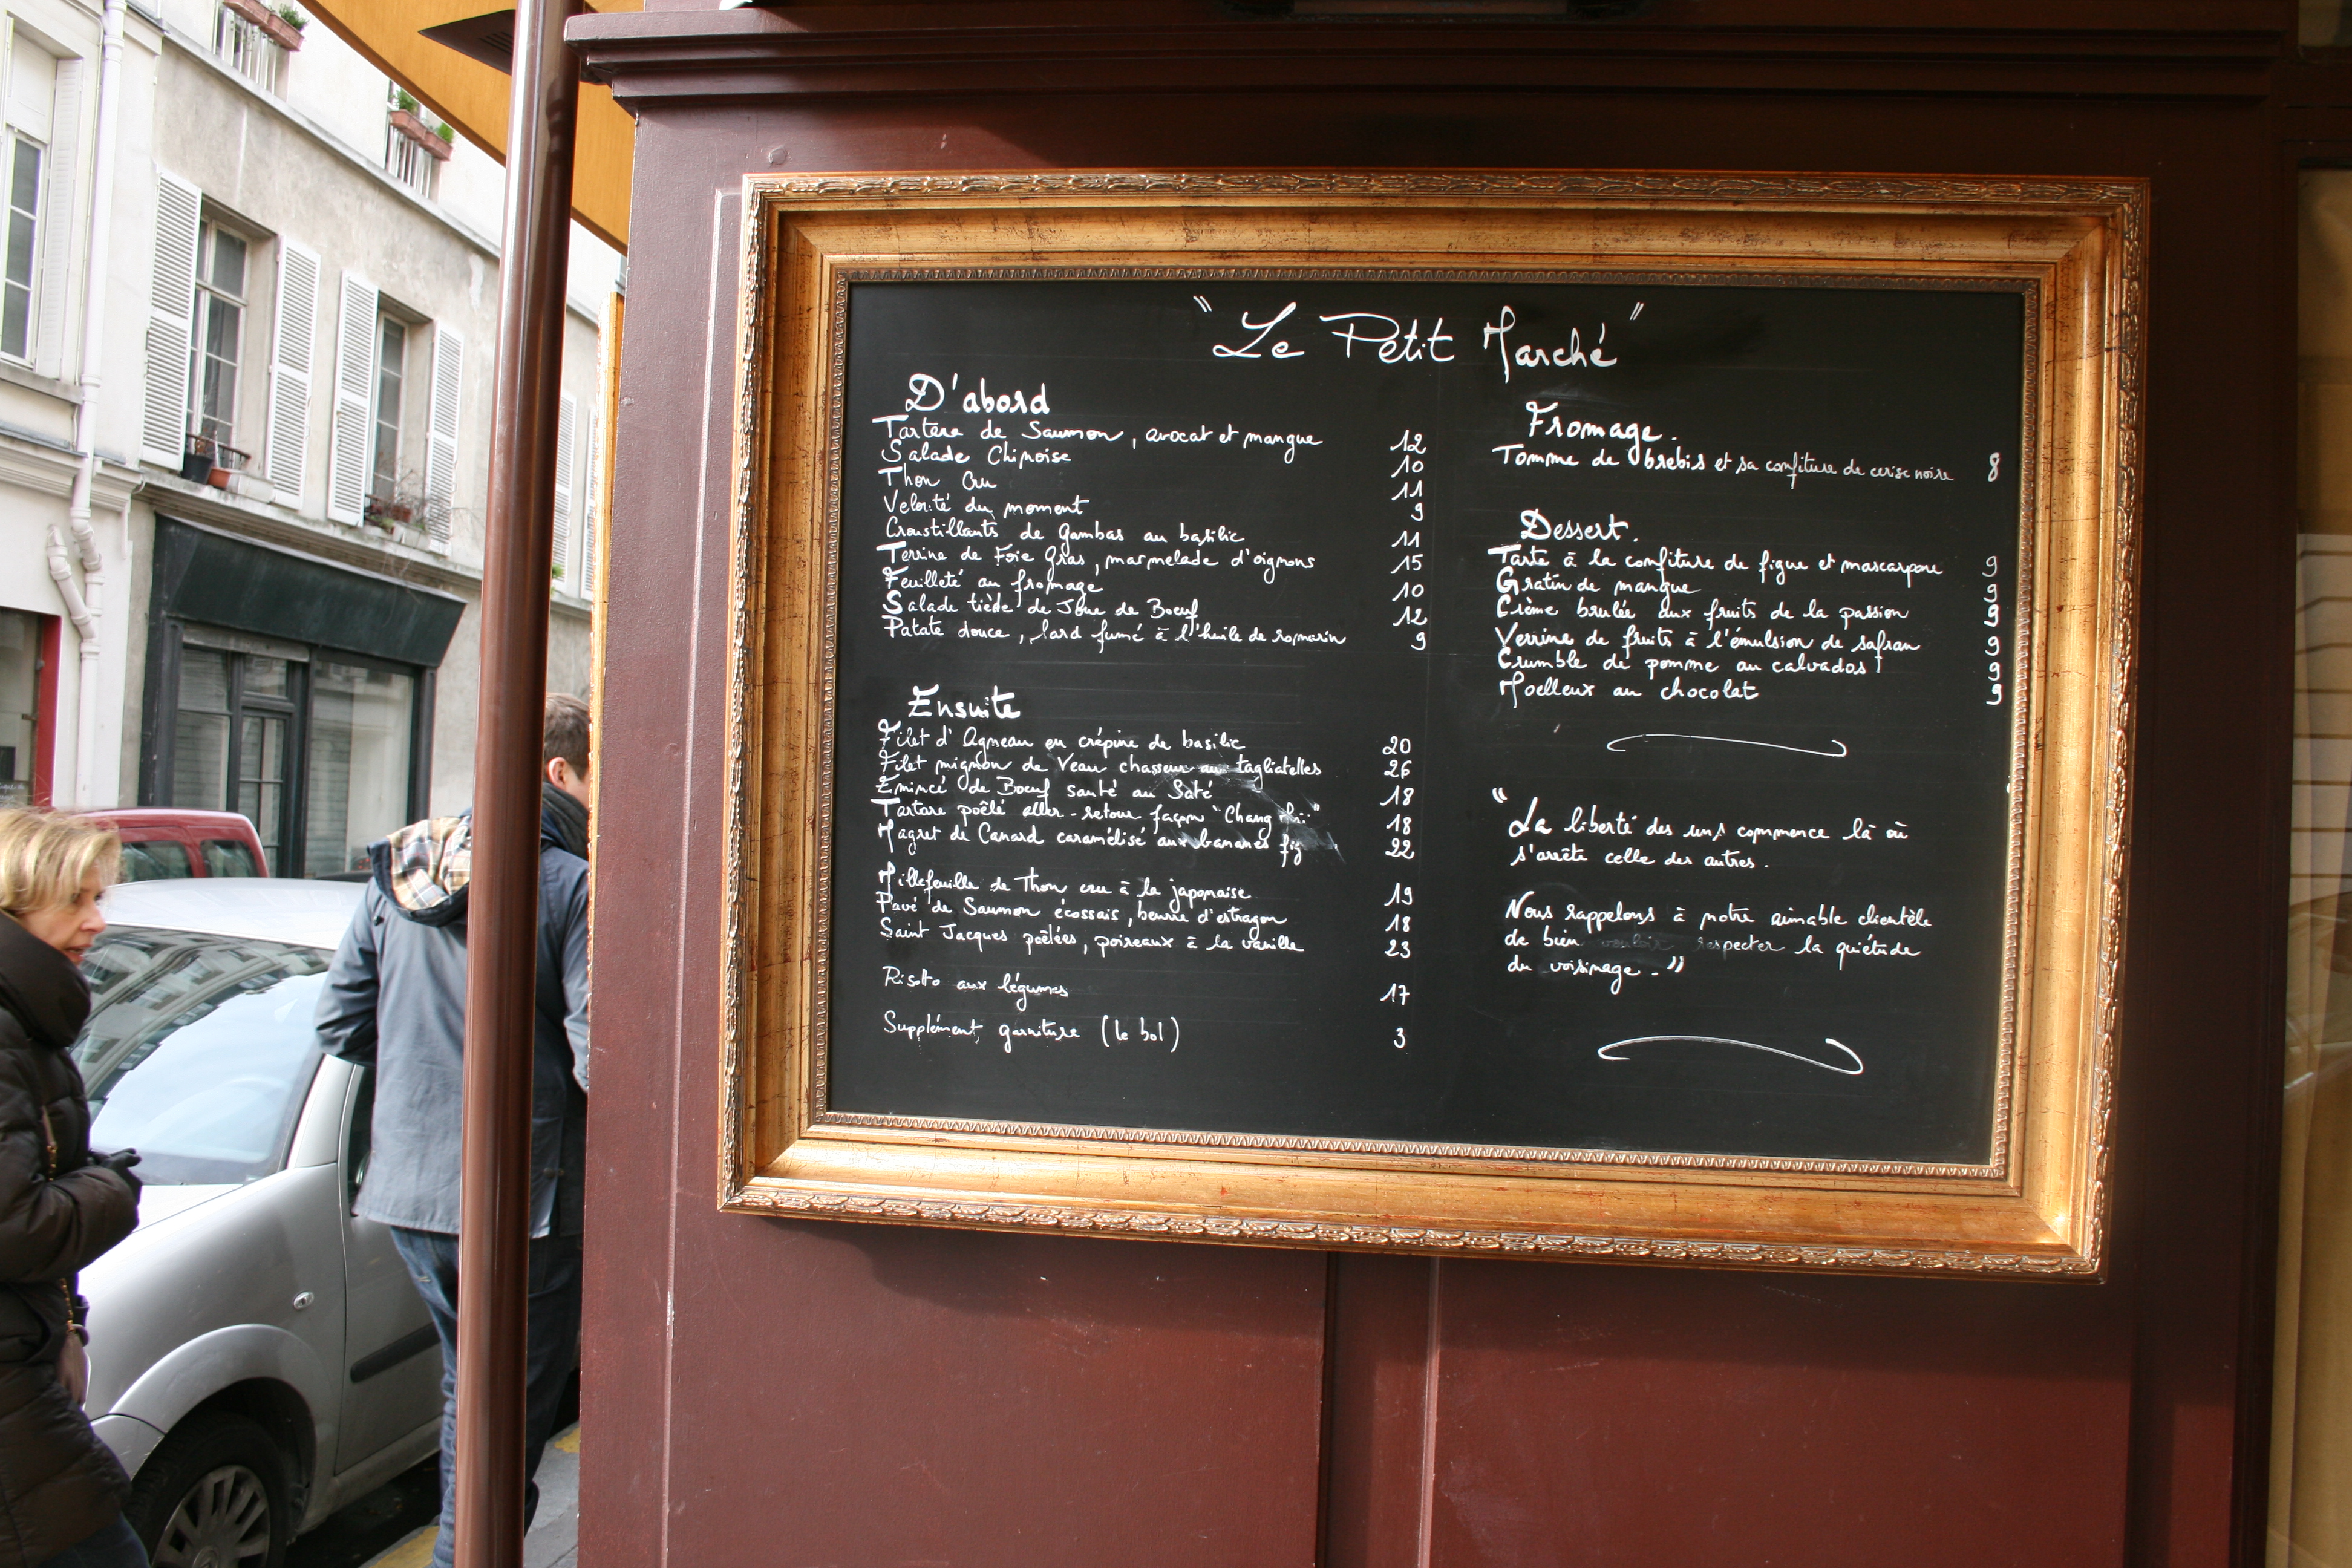 "Le Petit Marché"
D'abord
Tartare de Saumon, avocat et mangue 12
Salade Chinoise 10
Thon Cru 11
Velouté du moment 9
Croustillants de Gambas au basilic 11
Terrine de Foie Gras, marmelade d'oignons 15
Feuilleté au fromage 10
Salade tiède de Joue de Boeuf 12
Patate douce, lard fumé à l'huile de romarin 9
Ensuite
Filet d'Agneau en crépine de basilic 20
Filet mignon de Veau chasseur aux tagliatelles 26
Emincé de Boeuf sauté au Saté 18
Tartare poêlé aller-retour façon "Chang 18
Magret de Canard caramélisé aux bananes fig 22
Millefeuille de Thon cru à la japonaise 19
Pavé de Saumon écossais, beurre d'estragon 18
Saint Jacques poêlées, poireaux à la vanille 23
Risotto aux légumes 17
Supplément garniture (le bol) 3
Fromage.
Tomme de brebis et sa confiture de cerise noire 8
Dessert.
Tarte à la confiture de figue et mascarpone 9
Gratin de mangue 9
Crème brulée aux fruits de la passion 9
Verrine de fruits à l'émulsion de safran 9
Crumble de pomme au calvados 9
Moelleux au chocolat 9
"La liberté des uns commence là où
s'arrête celle des autres.
Nous rappelons à notre aimable clientèle
de bien vouloir respecter la quiétude
du voisinage."